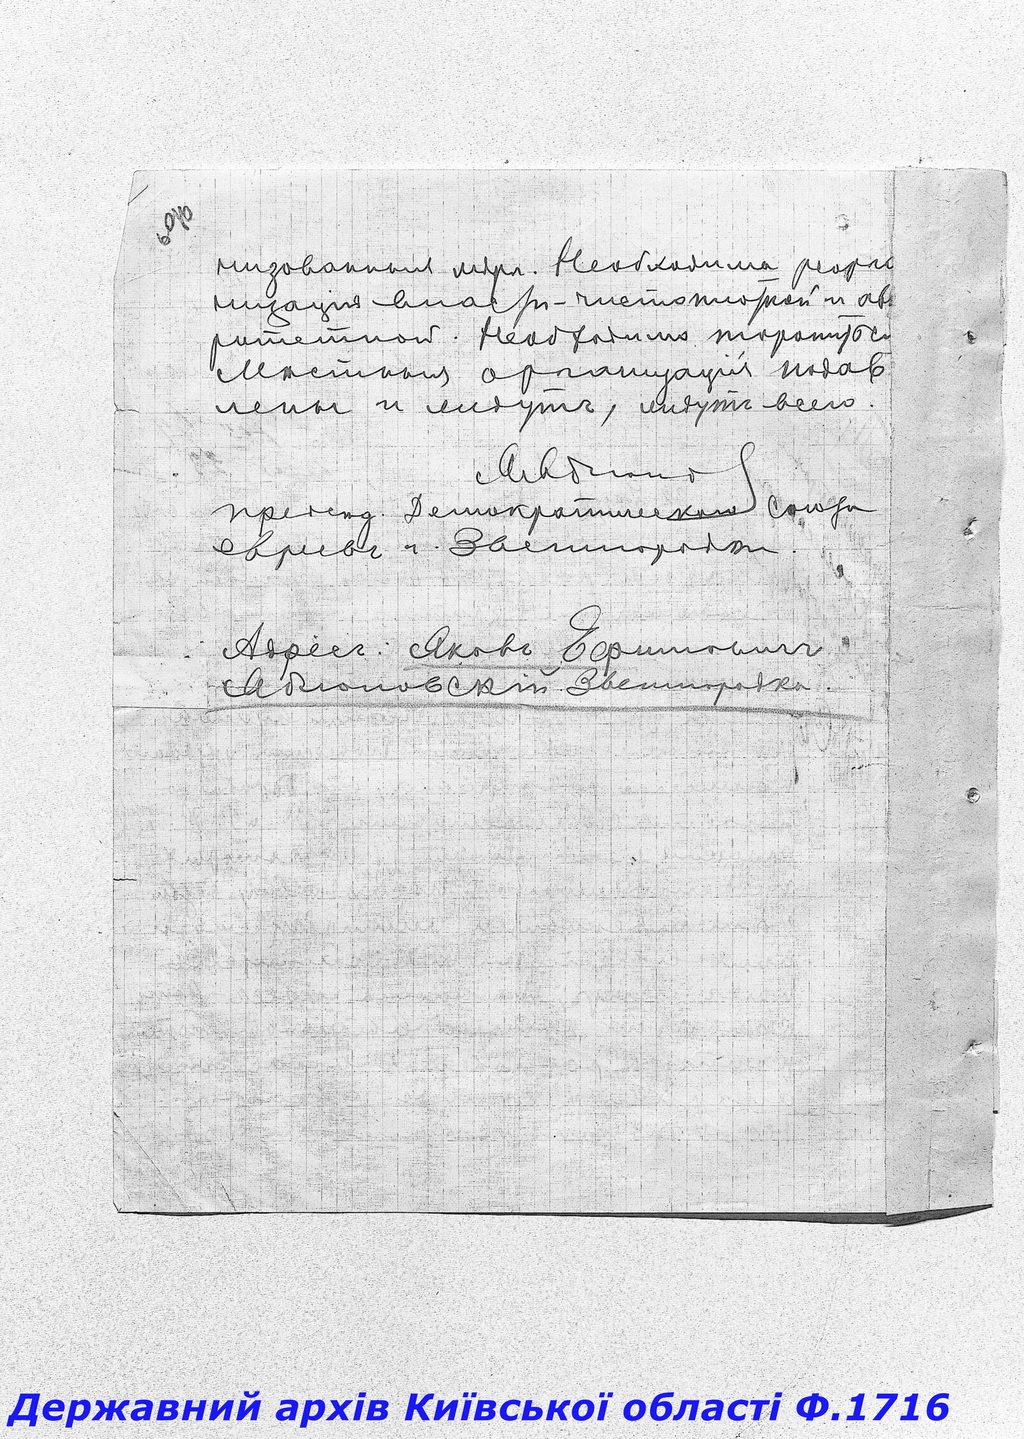 низованныя мѣры. Необходима реорга
низація власти - чистоплотной и ав
ритетной. Необходимо торопиться
Мѣстныя организаціи подав
лены и ждутъ, ждутъ всего.
предсѣд. Демократическаго Союза
евреевъ г. Звенигородки.
Адресъ: Яковъ Ефимовичъ
Звенигородка.
Державний архів Київської області Ф.1716